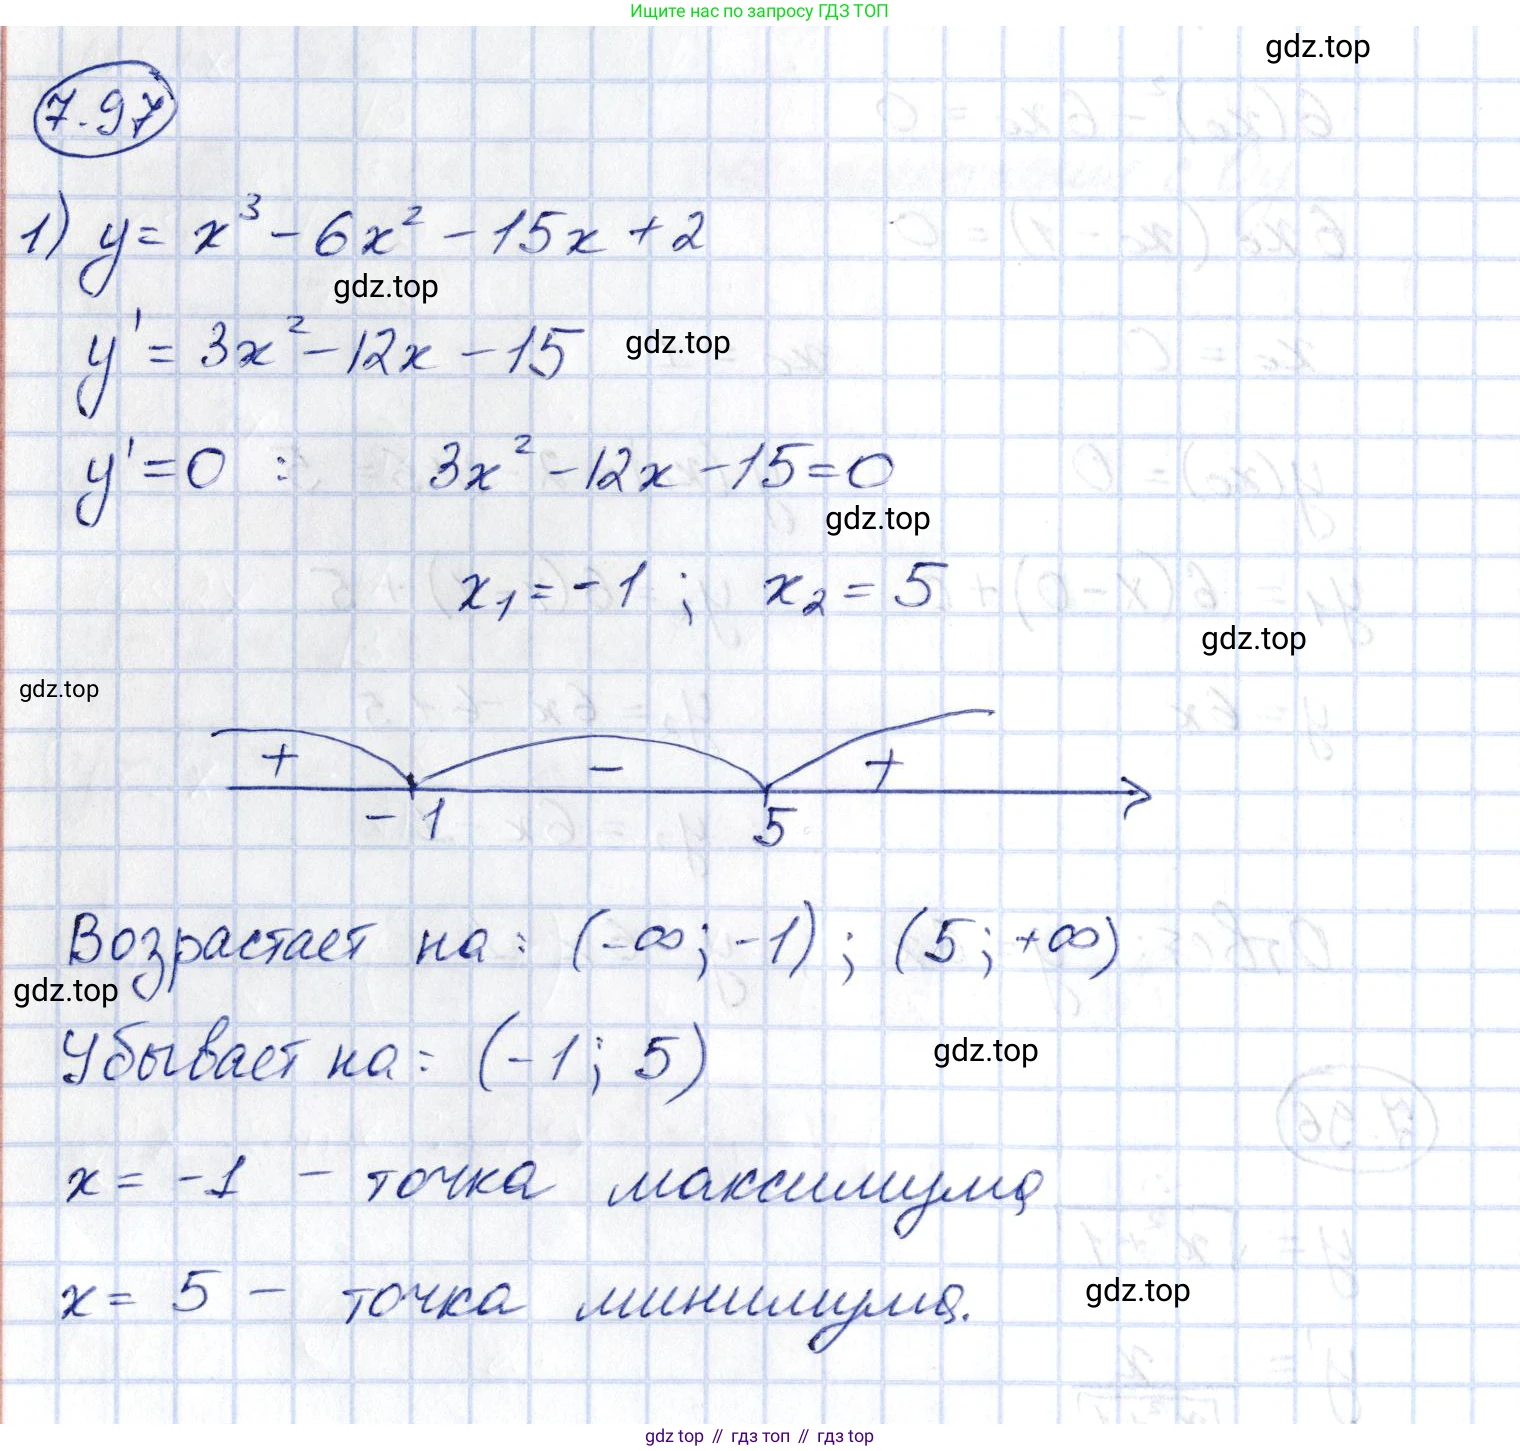 Ищите нас по запросу ГДЗ ТОП
gdz.top
7.97
1) y = x³ - 6x² - 15x + 2
gdz.top
y' = 3x² - 12x - 15
gdz.top
y' = 0 : 3x² - 12x - 15 = 0
gdz.top
x₁ = -1 ; x₂ = 5
gdz.top
gdz.top
+ - +
-1 5
Возрастает на: (-∞; -1) ; (5; +∞)
gdz.top
Убывает на: (-1; 5)
gdz.top
x = -1 - точка максимума
x = 5 - точка минимума.
gdz.top
gdz top // гдз топ // gdz top